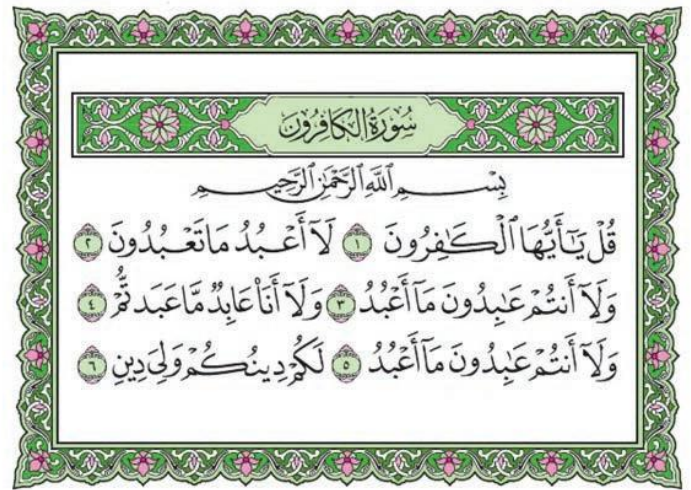 سُورَةُ الكَافِرُون
بِسْمِ اللَّهِ الرَّحْمَٰنِ الرَّحِيمِ
قُلْ يَـٰٓأَيُّهَا ٱلْكَـٰفِرُونَ ١ لَآ أَعْبُدُ مَا تَعْبُدُونَ ٢
وَلَآ أَنتُمْ عَـٰبِدُونَ مَآ أَعْبُدُ ٣ وَلَآ أَنَا۠ عَابِدٌ مَّا عَبَدتُّمْ ٤
وَلَآ أَنتُمْ عَـٰبِدُونَ مَآ أَعْبُدُ ٥ لَكُمْ دِينُكُمْ وَلِىَ دِينِ ٦